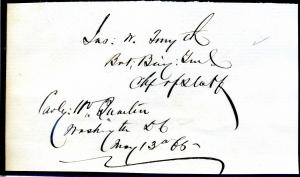 Jas: W. Forsyth
Bvt. Brig: Genl
Chf of Staff
Cavly: Hd Quarters
Washington DC
May 13th 65